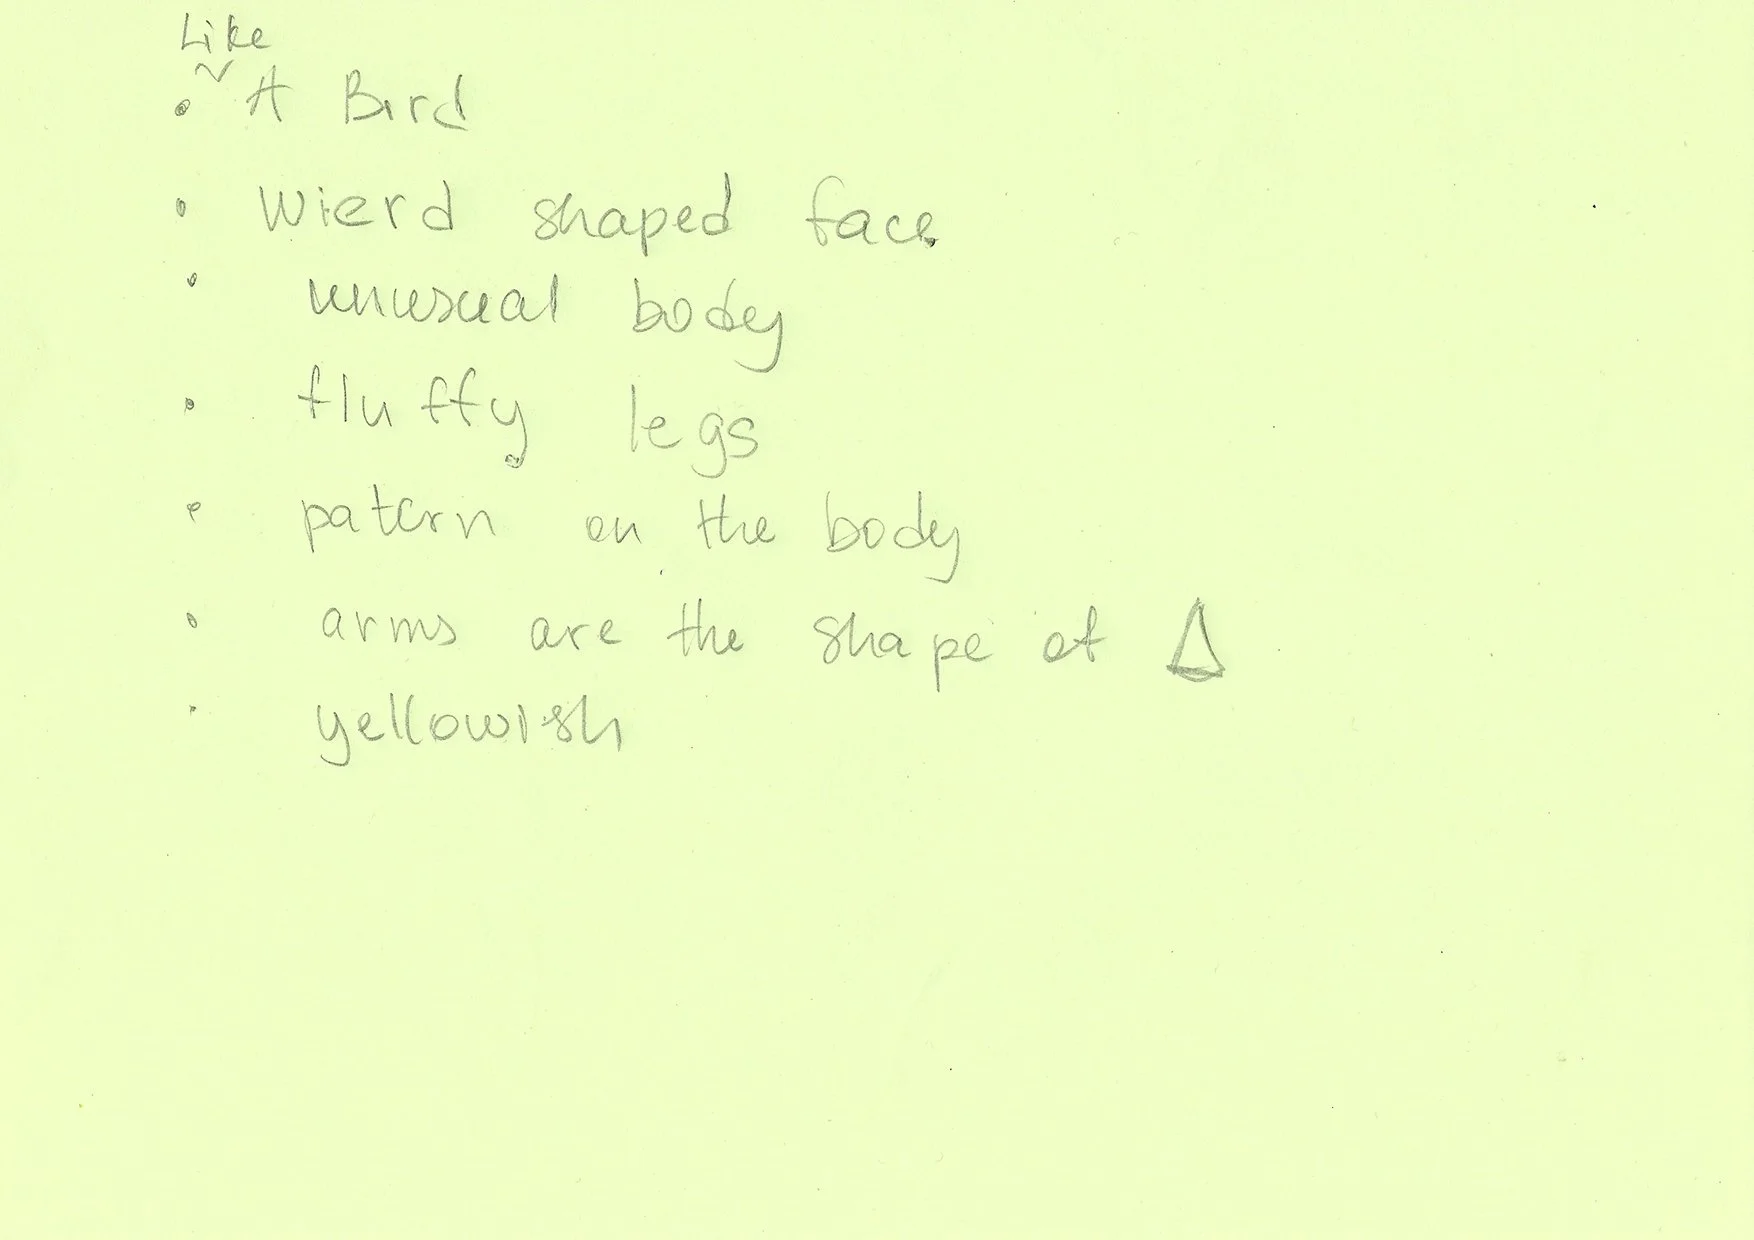 Like
• A Bird
• Wierd shaped face
• unusual body
• fluffy legs
• patern on the body
• arms are the shape of Δ
• yellowish